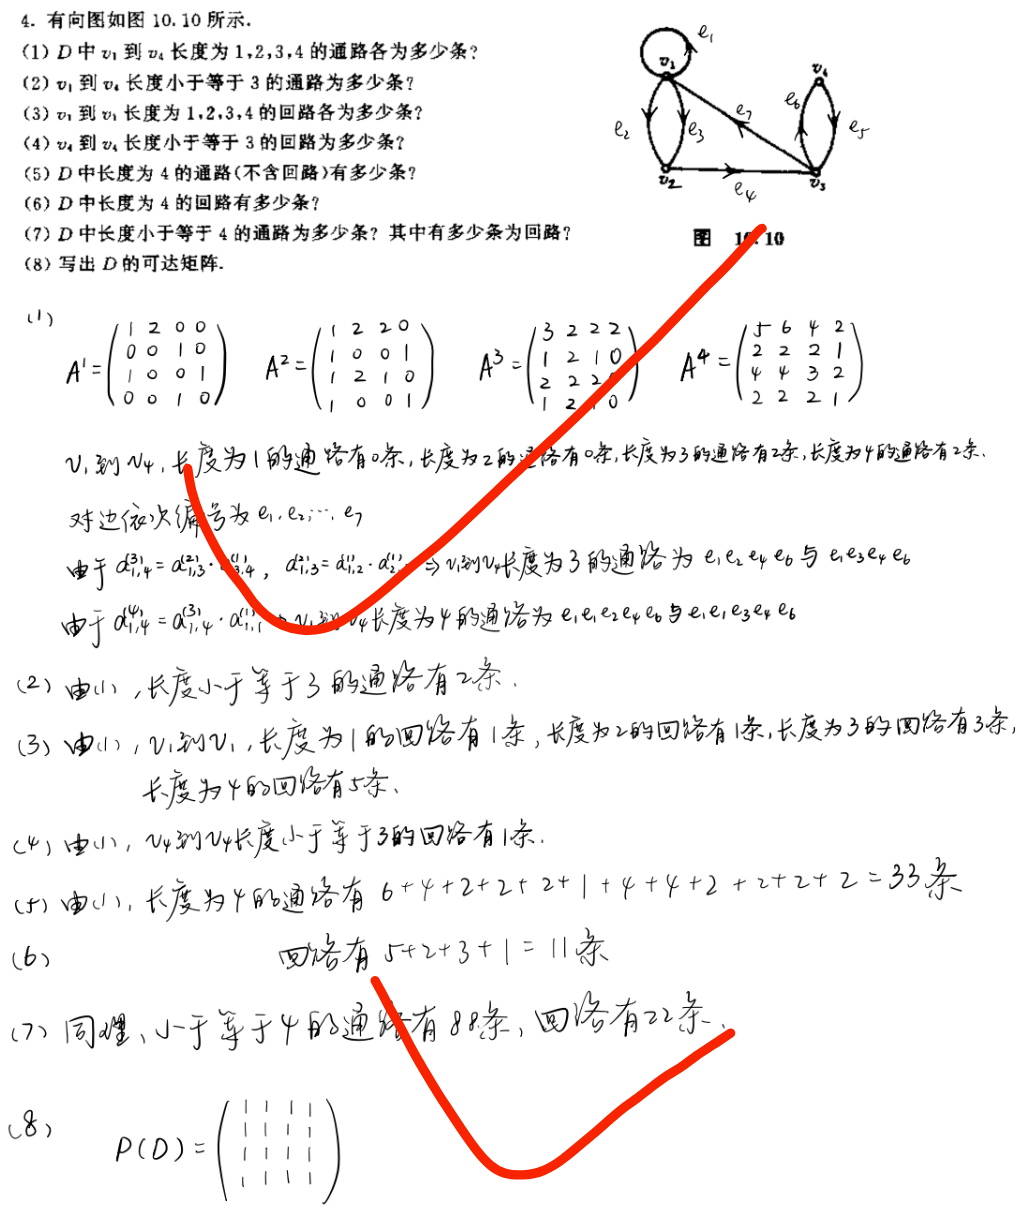 4. 有向图如图 10.10 所示.
(1) D 中 v₁ 到 v₄ 长度为 1,2,3,4 的通路各为多少条?
(2) v₁ 到 v₄ 长度小于等于 3 的通路为多少条?
(3) v₁ 到 v₁ 长度为 1,2,3,4 的回路各为多少条?
(4) v₄ 到 v₄ 长度小于等于 3 的回路为多少条?
(5) D 中长度为 4 的通路(不含回路)有多少条?
(6) D 中长度为 4 的回路有多少条?
(7) D 中长度小于等于 4 的通路为多少条? 其中有多少条为回路?
(8) 写出 D 的可达矩阵.
e₁
v₁
v₄
e₂
e₃
e₇
e₆
e₅
v₂
e₄
v₃
图 10.10
(1)
A¹ =
1 2 0 0
0 0 1 0
1 0 0 1
0 0 1 0
A² =
1 2 2 0
1 0 0 1
1 2 1 0
1 0 0 1
A³ =
3 2 2 2
1 2 1 0
2 2 2
1 2 0
A⁴ =
5 6 4 2
2 2 2 1
4 4 3 2
2 2 2 1
v₁到v₄, 长度为1的通路有0条, 长度为2的通路有0条, 长度为3的通路有2条, 长度为4的通路有2条.
对边依次编号为 e₁, e₂, ⋯, e₇
由于 a₁,₄⁽³⁾ = a₁,₃⁽²⁾ · ₃,₄⁽¹⁾, a₁,₃⁽²⁾ = a₁,₂⁽¹⁾ · a₂⁽¹⁾ ⇒ v₁到v₄长度为3的通路为 e₁e₂e₄e₆ 与 e₁e₃e₄e₆
由于 a₁,₄⁽⁴⁾ = a₁,₄⁽³⁾ · a₁,₁⁽¹⁾ v₁到v₄长度为4的通路为 e₁e₁e₂e₄e₆ 与 e₁e₁e₃e₄e₆
(2) 由(1), 长度小于等于3的通路有2条.
(3) 由(1), v₁到v₁, 长度为1的回路有1条, 长度为2的回路有1条, 长度为3的回路有3条,
长度为4的回路有5条.
(4) 由(1), v₄到v₄长度小于等于3的回路有1条.
(5) 由(1), 长度为4的通路有 6+4+2+2+2+1+4+4+2+2+2+2=33条
(6) 回路有 5+2+3+1=11条
(7) 同理, 小于等于4的通路有88条, 回路有22条.
(8) P(D) =
1 1 1 1
1 1 1 1
1 1 1 1
1 1 1 1